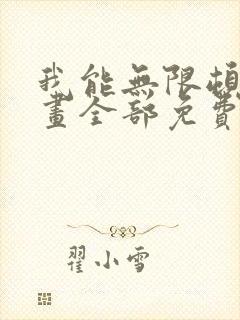 我能無限頓
畫全部免費
翟小雪